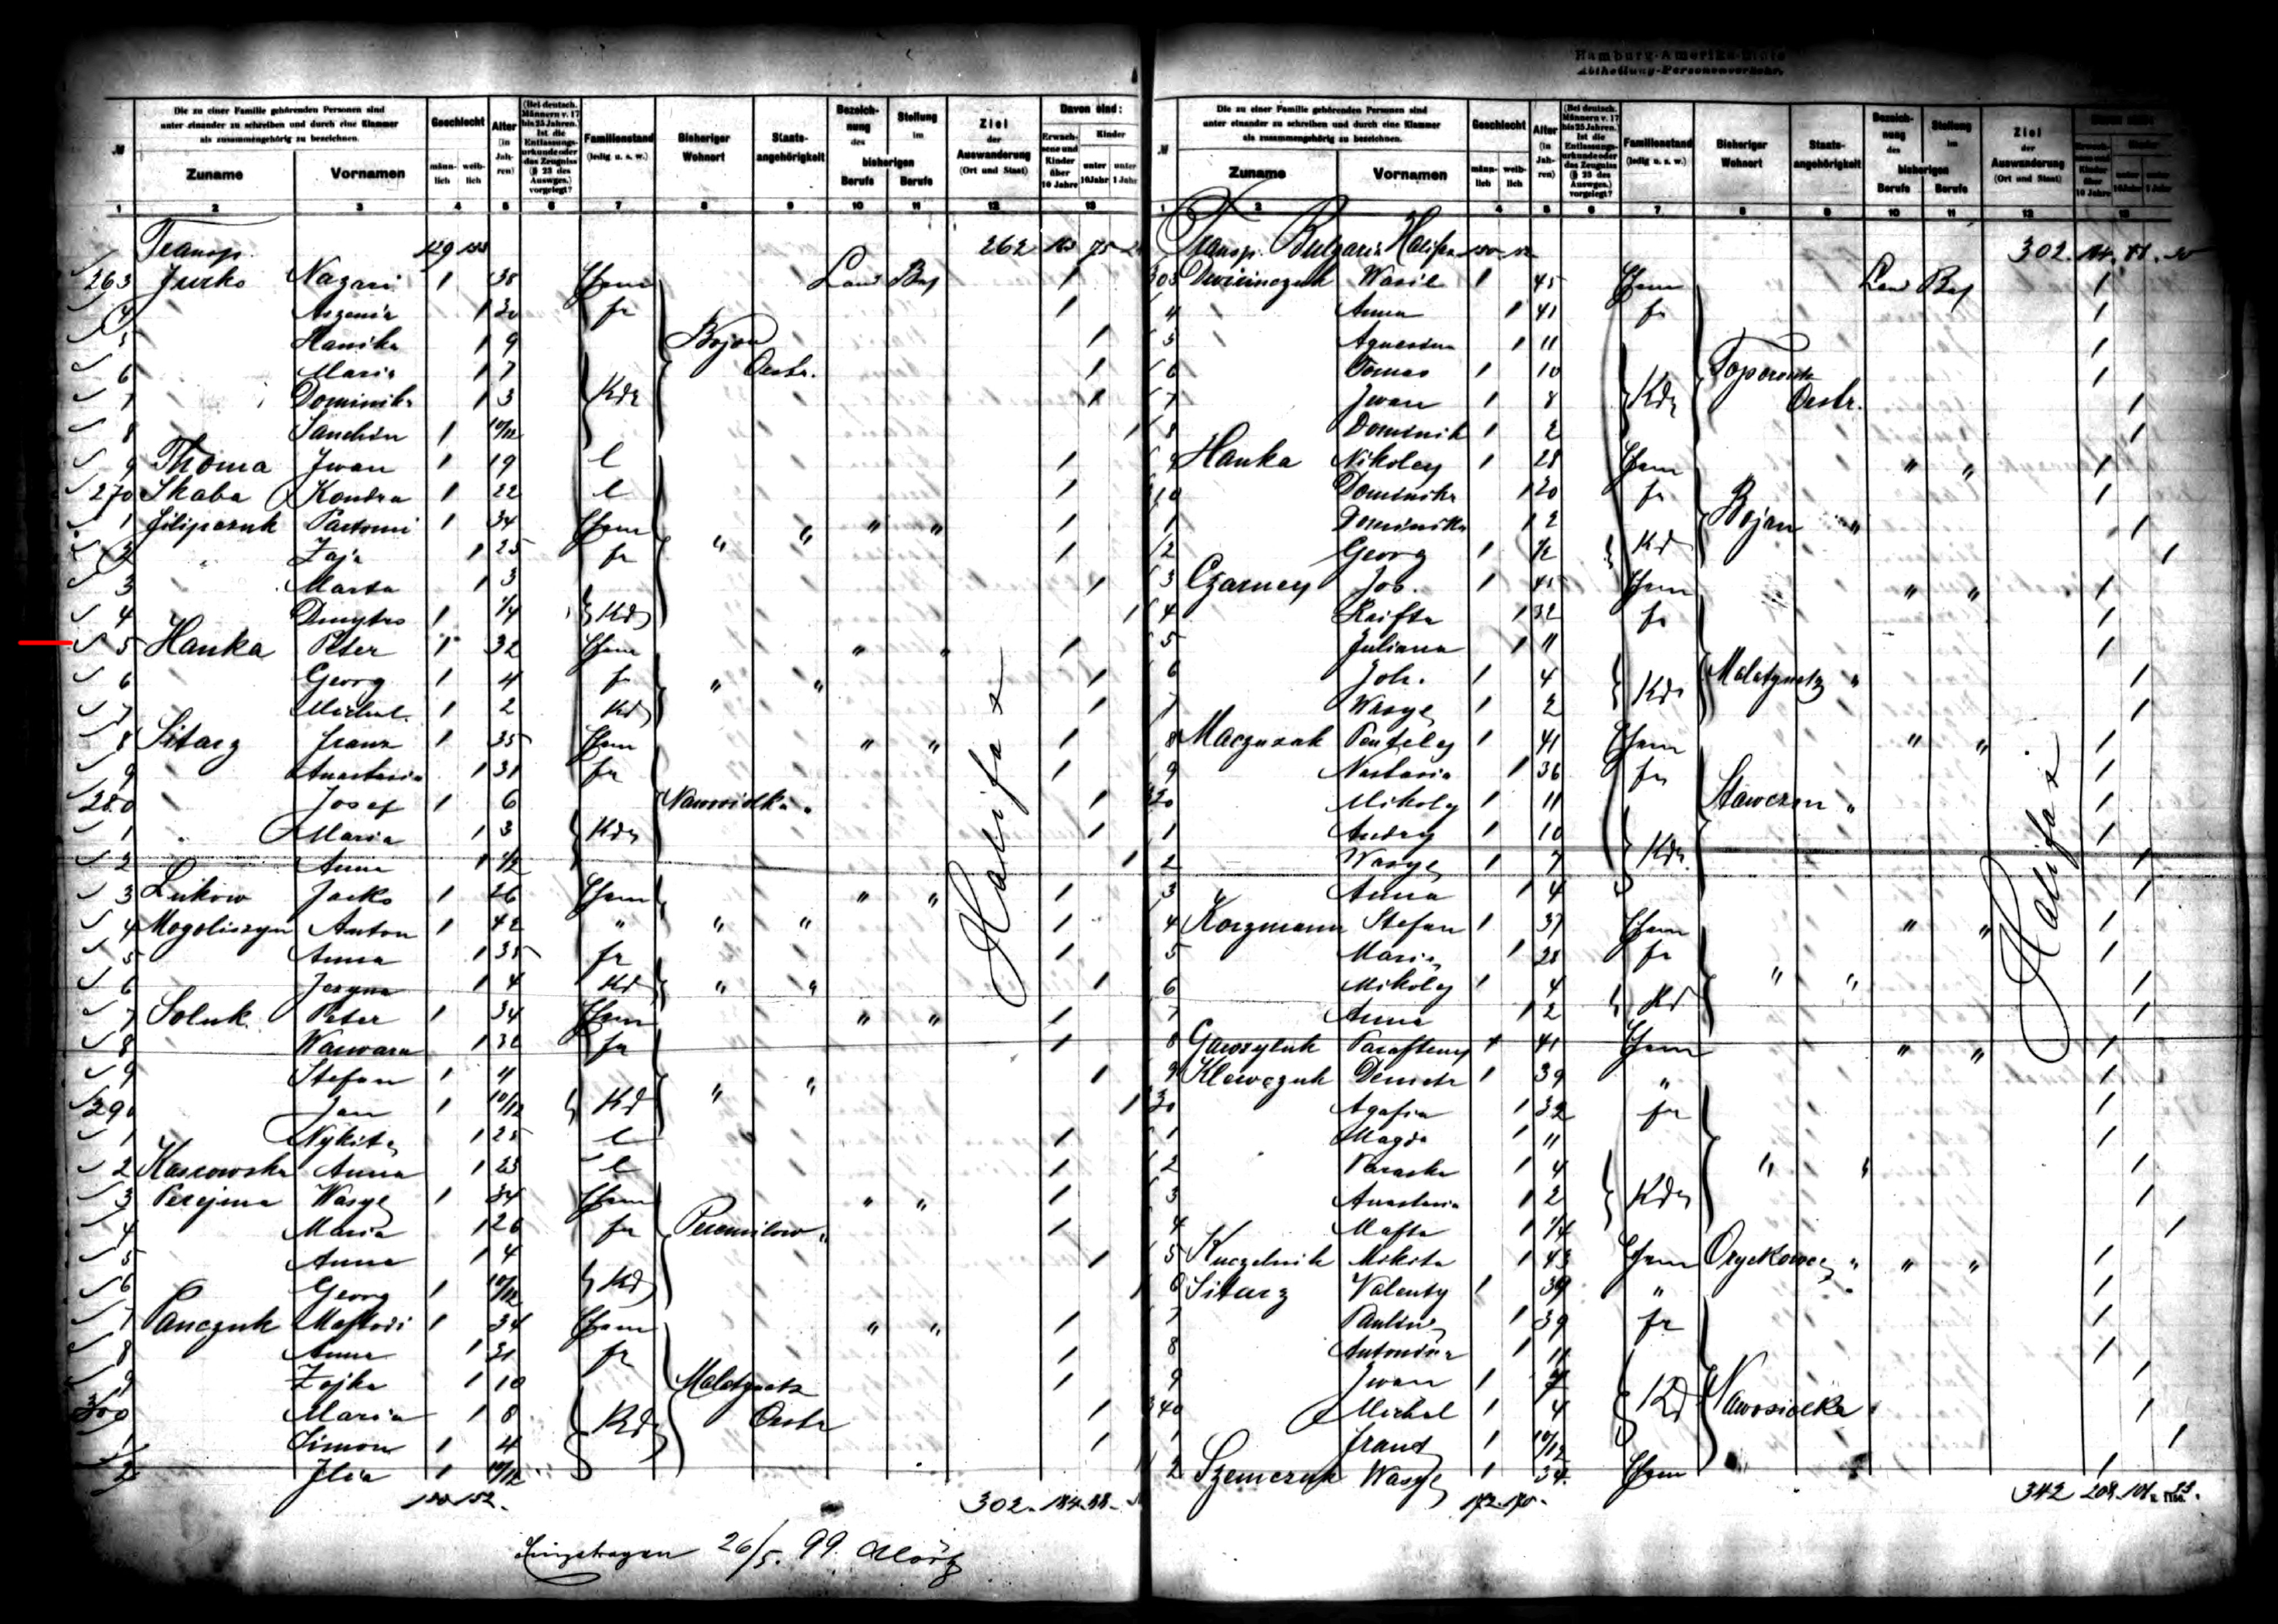 Hamburg-Amerika-Linie
Abtheilung-Personenverkehr.
Die zu einer Familie gehörenden Personen sind unter einander zu schreiben und durch eine Klammer als zusammengehörig zu bezeichnen.
Zuname Vornamen Geschlecht männlich weiblich Alter (in Jahren) (Bei deutsch. Männern v. 17 bis 25 Jahren.) Ist die Entlassungsurkunde oder das Zeugniss (§ 23 des Auswges.) vorgelegt? Familienstand (ledig u. s. w.) Bisheriger Wohnort Staatsangehörigkeit Bezeichnung des Stellung im bisherigen Berufs Berufs Ziel der Auswanderung (Ort und Staat) Davon sind: Erwachsene und Kinder über 10 Jahre Kinder unter 10 Jahr unter 1 Jahr
1 2 3 4 5 6 7 8 9 10 11 12 13
Transp. 129 133 262
263 Jurko Nazari 1 38 Ehem Land 1
4 1 30 fr 1
5 Hanika 1 9 Bojan 1
6 Maria 1 7 Oestr. 1
7 Dominika 1 3 Kdr 1
8 1 10/12 1
9 Thoma Iwan 1 19 l 1
270 Skaba Kondra 1 22 l 1
1 Filipczuk 1 34 Ehem " " " " 1
2 1 25 fr 1
3 Marta 1 3 1
4 Dmytro 1 1/4 Kd 1
5 Hanka Peter 1 32 Ehem " " 1
6 Georg 1 4 fr " " 1
7 Michal. 1 2 Kd 1
8 Sitarz Franz 1 35 Ehem " " 1
9 Anastasia 1 31 fr 1
280 Josef 1 6 Nawosiolka " 1
1 Maria 1 3 Kdr 1
2 Anna 1 1/2 1
3 Lukow Jacko 1 26 Ehem " " 1
4 Mogoliszyn Anton 1 42 " " " 1
5 Anna 1 35 fr 1
6 1 4 Kd " " 1
7 Soluk Peter 1 34 Ehem " " 1
8 Warwara 1 fr 1
9 Stefan 1 4 1
290 Jan 1 10/12 Kd " " 1
1 Nykita 1 25 l 1
2 Anna 1 23 l 1
3 Perejma Wasyl 1 34 Ehem " " 1
4 Maria 1 26 fr Peremilow " 1
5 Anna 1 4 1
6 Georg 1 10/12 Kd 1
7 Panczuk 1 34 Ehem " " 1
8 Anna 1 31 fr 1
9 Zojka 1 10 1
300 Maria 1 8 Kdr Oestr 1
1 Simon 1 4 1
2 Ilia 1 10/12
Halifax
150 152. 302. 184. 88.
26/5. 99.
Die zu einer Familie gehörenden Personen sind unter einander zu schreiben und durch eine Klammer als zusammengehörig zu bezeichnen.
Zuname Vornamen Geschlecht männlich weiblich Alter (in Jahren) (Bei deutsch. Männern v. 17 bis 25 Jahren.) Ist die Entlassungsurkunde oder das Zeugniss (§ 23 des Auswges.) vorgelegt? Familienstand (ledig u. s. w.) Bisheriger Wohnort Staatsangehörigkeit Bezeichnung des Stellung im bisherigen Berufs Berufs Ziel der Auswanderung (Ort und Staat) Erwachsene und Kinder über 10 Jahre Kinder unter 10 Jahr unter 1 Jahr
1 2 3 4 5 6 7 8 9 10 11 12 13
Transp. Bulgaria Halifax 150 152 302.
303 Wasil 1 45 Ehem Land 1
4 Anna 1 41 fr 1
5 1 11 1
6 Tomas 1 10 1
7 Iwan 1 8 Kdr Oestr. 1
8 Dominik 1 2 1
9 Hanka Nikoley 1 28 Ehem " " 1
310 Dominika 1 20 fr 1
1 Dominika 1 2 Bojan " 1
2 Georg 1 1/2 Kd 1
3 Czarney Jos. 1 45 Ehem " " 1
4 1 32 fr 1
5 Juliana 1 11 1
6 Joh. 1 4 Kdr " 1
7 Wasyl 1 2 1
8 Panteley 1 41 Ehem " " 1
9 Nastasia 1 36 fr 1
320 Mikoly 1 11 Stawczan " 1
1 Andry 1 10 1
2 Wasyl 1 7 Kdr. 1
3 Anna 1 4 1
4 Korzmann Stefan 1 37 Ehem " " 1
5 Maria 1 28 fr 1
6 Mikoly 1 4 " " 1
7 Anna 1 2 Kd 1
8 1 41 Ehem " " 1
9 Demetr 1 39 " 1
330 Agafia 1 32 fr 1
1 Magda 1 11 1
2 Paraska 1 4 " " 1
3 Anastasia 1 2 Kdr 1
4 1 1/4 1
5 Kuczelnik Mikita 1 43 Ehem " " " 1
6 Sitarz Valenty 1 39 " 1
7 Paulina 1 39 fr 1
8 Antonina 1 11 1
9 Iwan 1 7 1
340 Michal 1 4 Kd Nawosiolka " 1
1 Franz 1 10/12 1
2 Szemczuk Wasyl 1 34. Ehem 1
Halifax
172. 170. 342